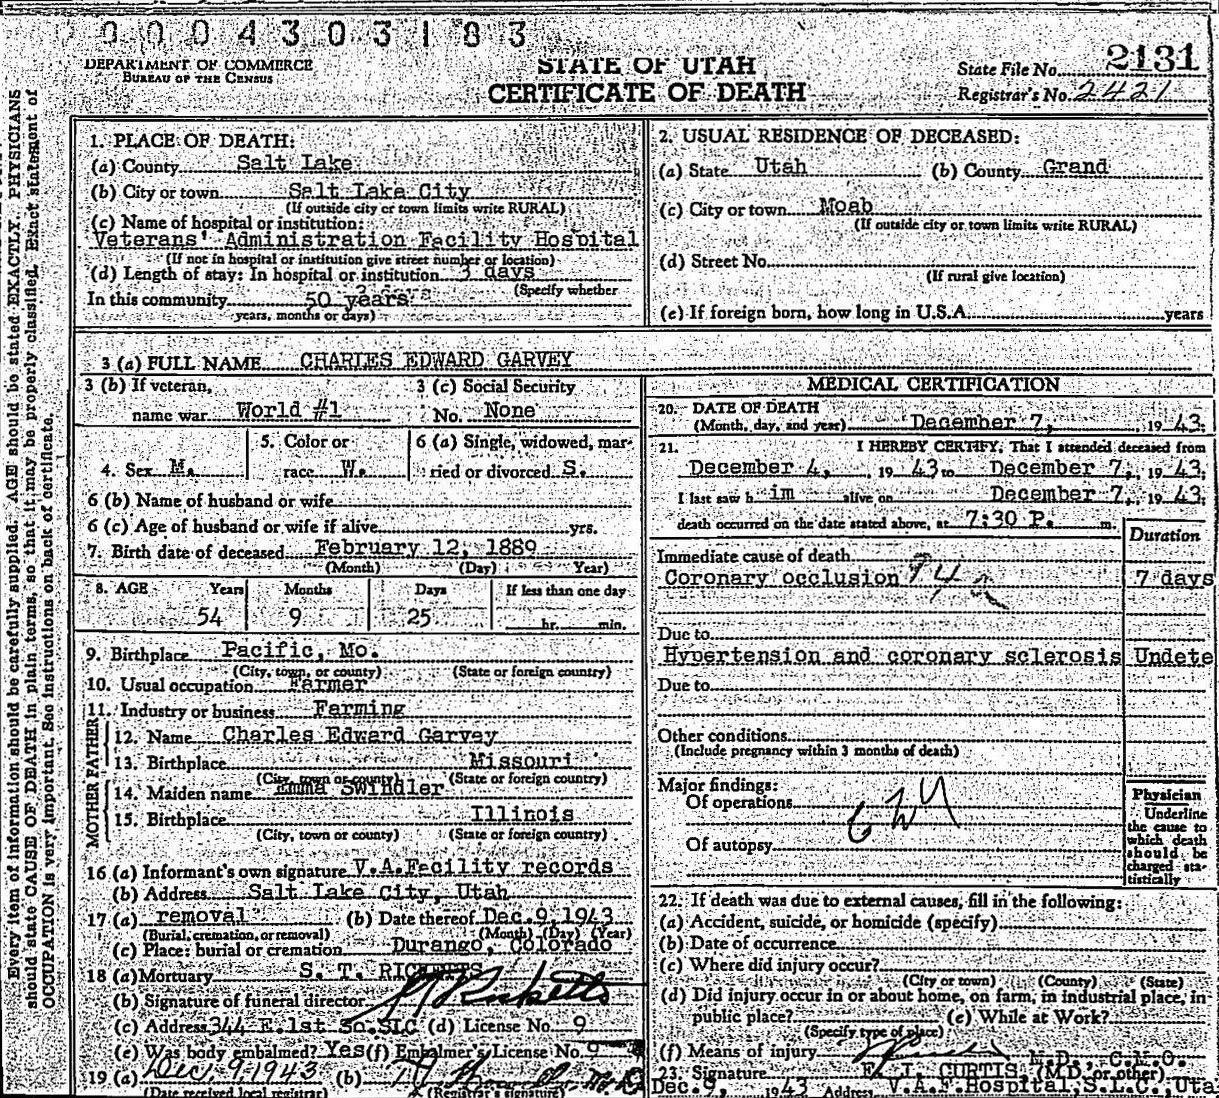 0 0 0 4 3 0 3 1 8 3
DEPARTMENT OF COMMERCE
BUREAU OF THE CENSUS
STATE OF UTAH
CERTIFICATE OF DEATH
State File No. 2131
Registrar's No. 2421
Every item of information should be carefully supplied. AGE should be stated EXACTLY. PHYSICIANS
should state CAUSE OF DEATH in plain terms, so that it may be properly classified. Exact statement of
OCCUPATION is very important. See instructions on back of certificate.
1. PLACE OF DEATH:
(a) County Salt Lake
(b) City or town Salt Lake City
(If outside city or town limits write RURAL)
(c) Name of hospital or institution:
Veterans' Administration Facility Hospital
(If not in hospital or institution give street number or location)
(d) Length of stay: In hospital or institution 3 days
(Specify whether
In this community 50 years
years, months or days)
2. USUAL RESIDENCE OF DECEASED:
(a) State Utah (b) County Grand
(c) City or town Moab
(If outside city or town limits write RURAL)
(d) Street No.
(If rural give location)
(e) If foreign born, how long in U.S.A. years
3 (a) FULL NAME CHARLES EDWARD GARVEY
3 (b) If veteran, 3 (c) Social Security
name war World #1 No. None
4. Sex M. 5. Color or race W. 6 (a) Single, widowed, married or divorced S.
6 (b) Name of husband or wife
6 (c) Age of husband or wife if alive yrs.
7. Birth date of deceased February 12, 1889
(Month) (Day) Year)
8. AGE Years Months Days If less than one day
54 9 25 hr. min.
9. Birthplace Pacific, Mo.
(City, town, or county) (State or foreign country)
10. Usual occupation Farmer
11. Industry or business Farming
FATHER
12. Name Charles Edward Garvey
13. Birthplace Missouri
(City, town or county) (State or foreign country)
MOTHER
14. Maiden name Emma Swindler
15. Birthplace Illinois
(City, town or county) (State or foreign country)
16 (a) Informant's own signature V.A.Facility records
(b) Address Salt Lake City, Utah
17 (a) removal (b) Date thereof Dec.9,1943
(Burial, cremation, or removal) (Month) (Day) (Year)
(c) Place: burial or cremation Durango, Colorado
18 (a) Mortuary S. T. RICKETTS
(b) Signature of funeral director Ricketts
(c) Address 344 E.1st So.SLC (d) License No. 9
(e) Was body embalmed? Yes (f) Embalmer's License No. 9
19 (a) Dec. 9, 1943 (b)
(Date received local registrar) (Registrar's signature)
MEDICAL CERTIFICATION
20. DATE OF DEATH
(Month, day, and year) December 7, 1943.
21. I HEREBY CERTIFY, That I attended deceased from
December 4, 1943 to December 7, 1943.
I last saw him alive on December 7, 1943.
death occurred on the date stated above, at 7:30 P. m.
Duration
Immediate cause of death
Coronary occlusion 94a 7 days
Due to
Hypertension and coronary sclerosis Undete
Due to
Other conditions
(Include pregnancy within 3 months of death)
Major findings:
Of operations
Of autopsy
Physician
Underline
the cause to
which death
should be
charged sta-
tistically
22. If death was due to external causes, fill in the following:
(a) Accident, suicide, or homicide (specify)
(b) Date of occurrence
(c) Where did injury occur?
(City or town) (County) (State)
(d) Did injury occur in or about home, on farm, in industrial place, in
public place? (e) While at Work?
(Specify type of place)
(f) Means of injury M.D., C.M.O.
23. Signature F. J. CURTIS (M.D. or other)
Dec.9, 1943 Address V.A.F.Hospital,S.L.C.,Uta